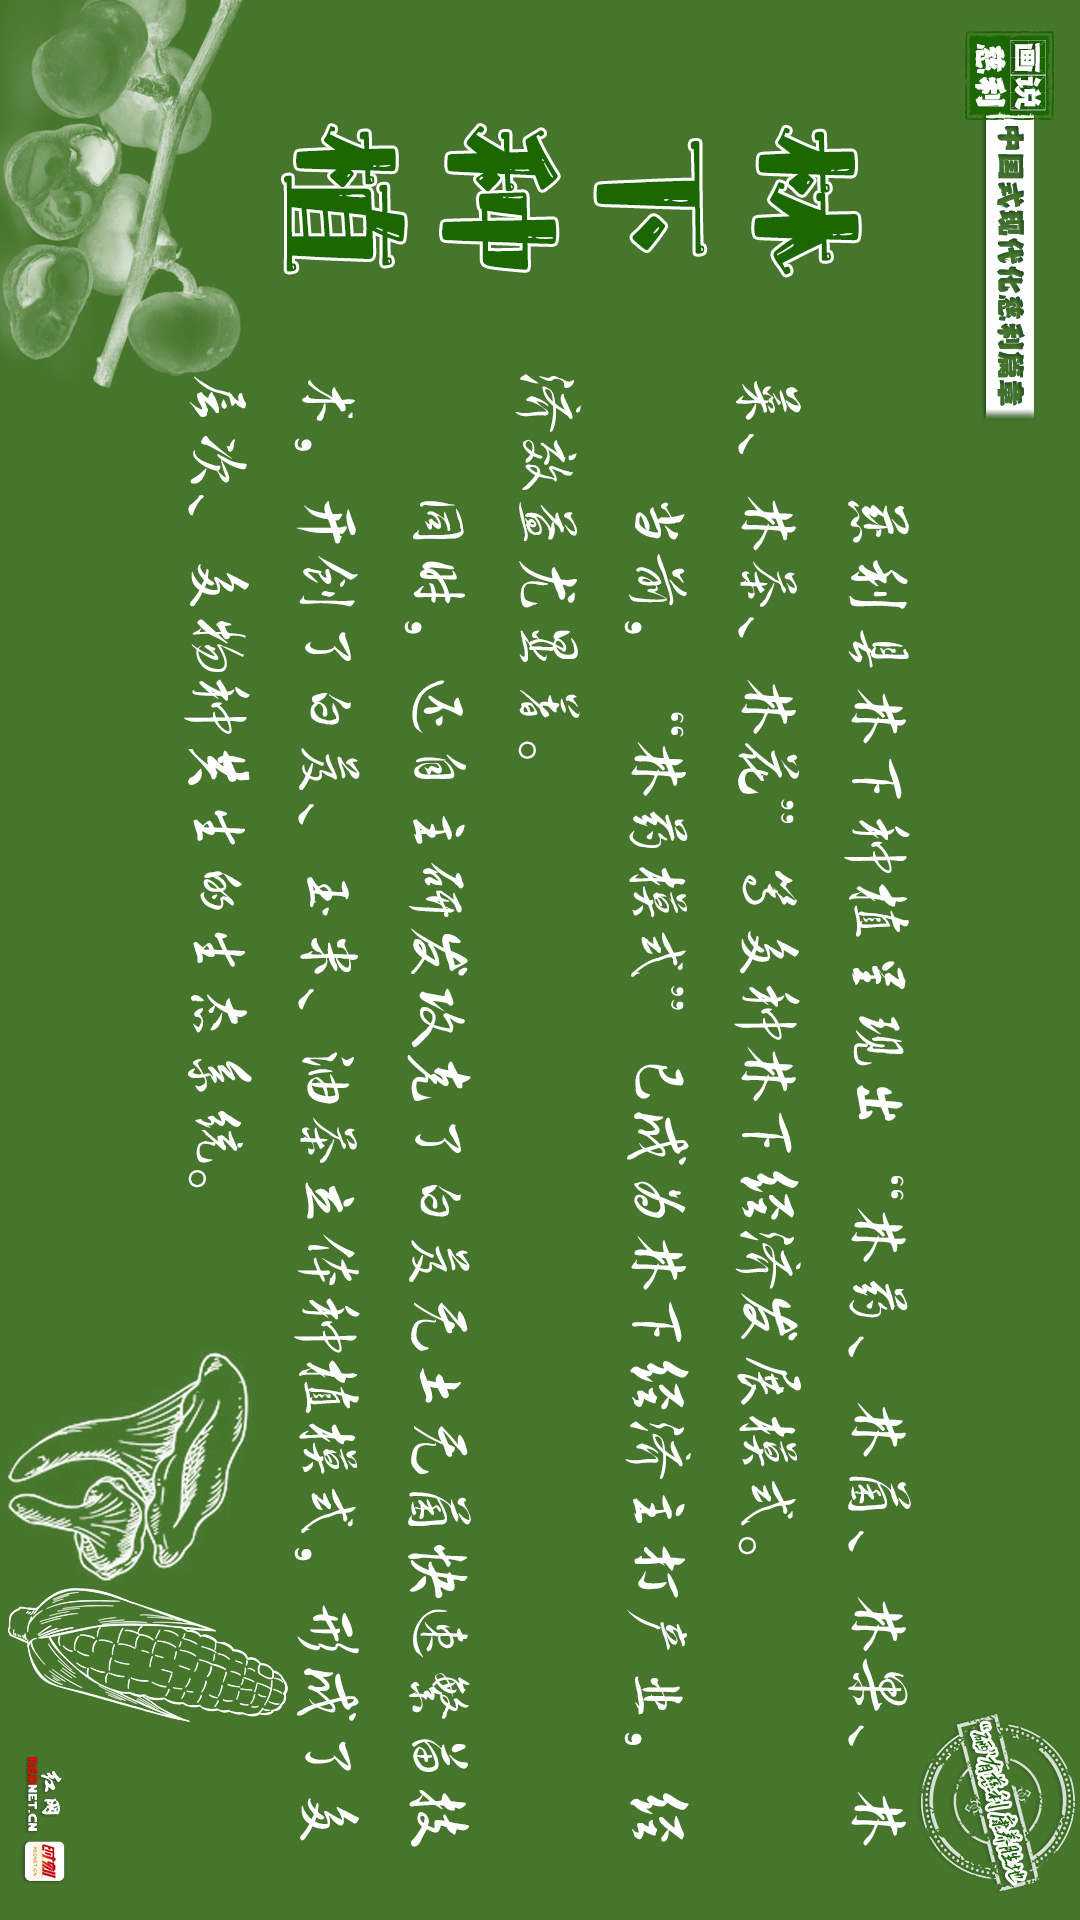 画说
慈利
中国式现代化慈利篇章
林下种植
慈利县林下种植呈现出“林药、林菌、林果、林
菜、林茶、林花”等多种林下经济发展模式。
当前，“林药模式”已成为林下经济主打产业，经
济效益尤显著。
同时，还自主研发攻克了白芨无土无菌快速繁苗技
术，开创了白芨、玉米、油茶立体种植模式，形成了多
层次、多物种共生的生态系统。
红网
REDNET.CN
时刻
REDNET.CN